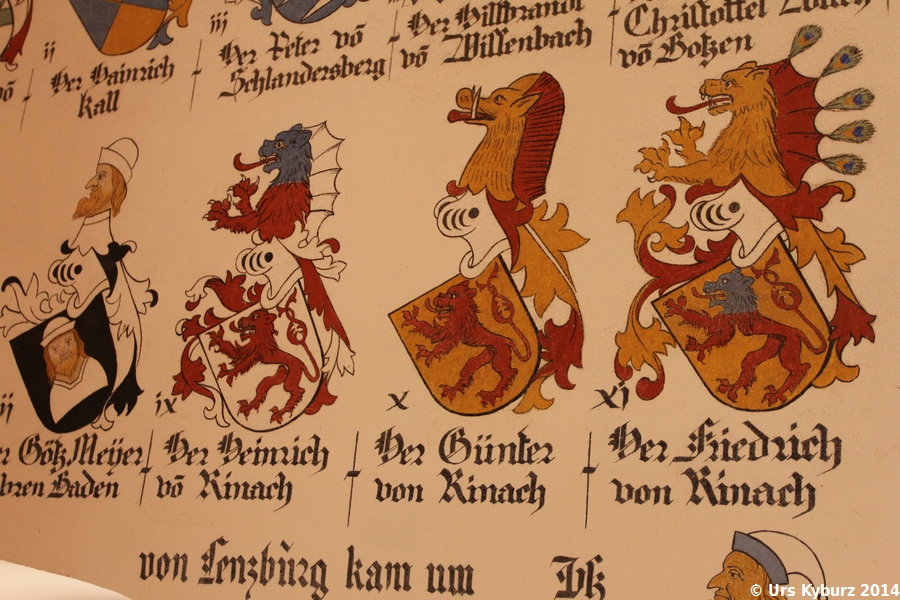 ij
Her Hainrich
kall
iij
Her Peter vō
Schlandersberg
Her Hillbrandt
vō Willenbach
Christoffel
vō Botzen
Götz Meyer
Baden
ix
Her Heinrich
vō Rinach
x
Her Günter
von Rinach
xj
Her Friedrich
von Rinach
von Lenzbŭrg kam um
© Urs Kyburz 2014